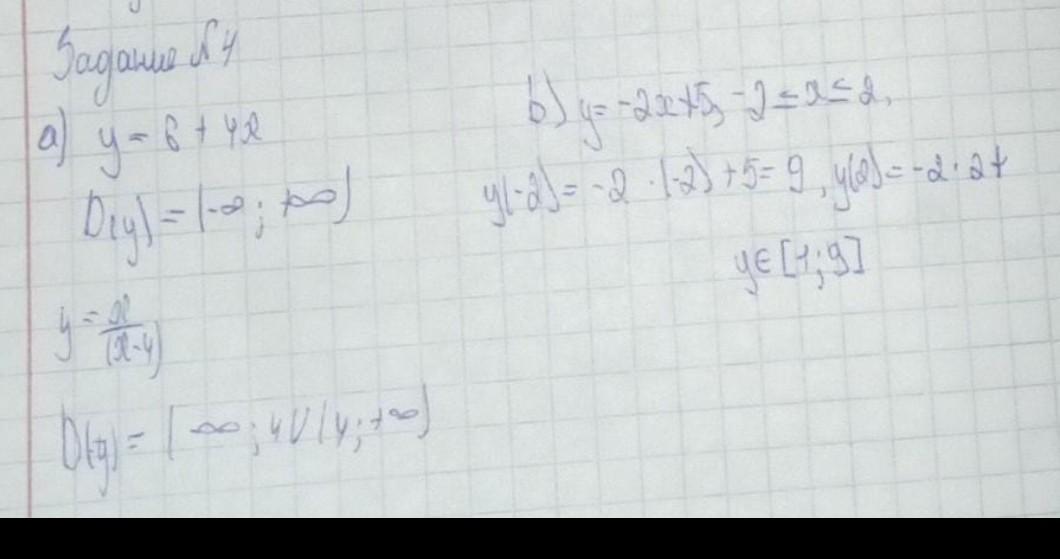 Задание №4
a) y = 6 + 4x
D(y) = (-∞; +∞)
y = x/(x-4)
D(y) = (-∞; 4 U (4; +∞)
b) y = -2x+5, -2 ≤ x ≤ 2,
y(-2) = -2 · (-2) + 5 = 9, y(2) = -2 · 2 +
y ∈ [1; 9]